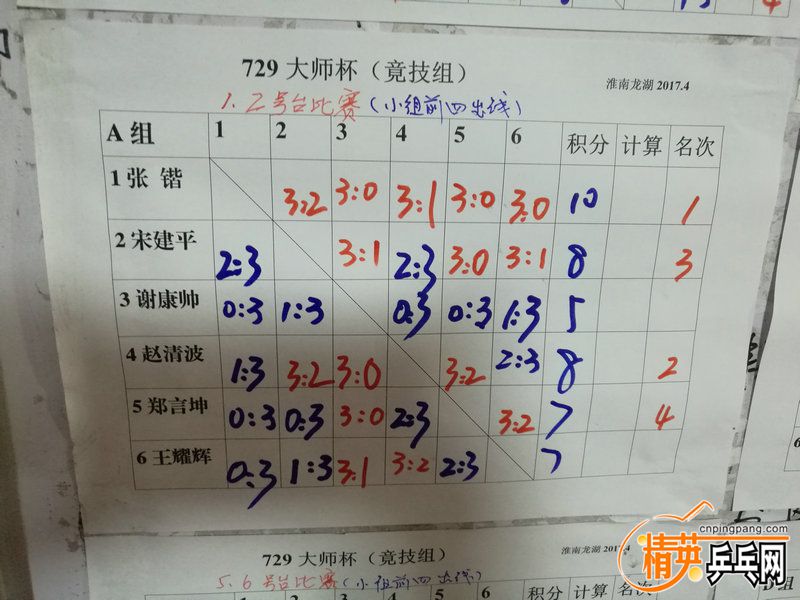 729 大师杯（竞技组）
淮南龙湖 2017.4
1.2号台比赛（小组前四出线）
A 组 1 2 3 4 5 6 积分 计算 名次
1 张 锴 3:2 3:0 3:1 3:0 3:0 10 1
2 宋建平 2:3 3:1 2:3 3:0 3:1 8 3
3 谢康帅 0:3 1:3 0:3 0:3 1:3 5
4 赵清波 1:3 3:2 3:0 3:2 2:3 8 2
5 郑言坤 0:3 0:3 3:0 2:3 3:2 7 4
6 王耀辉 0:3 1:3 3:1 3:2 2:3 7
cnpingpang.com
精英乒乓网
729 大师杯（竞技组）
淮南龙湖 2017.4
5.6号台比赛（小组前四出线）
1 2 3 4 5 6 积分 计算 名次